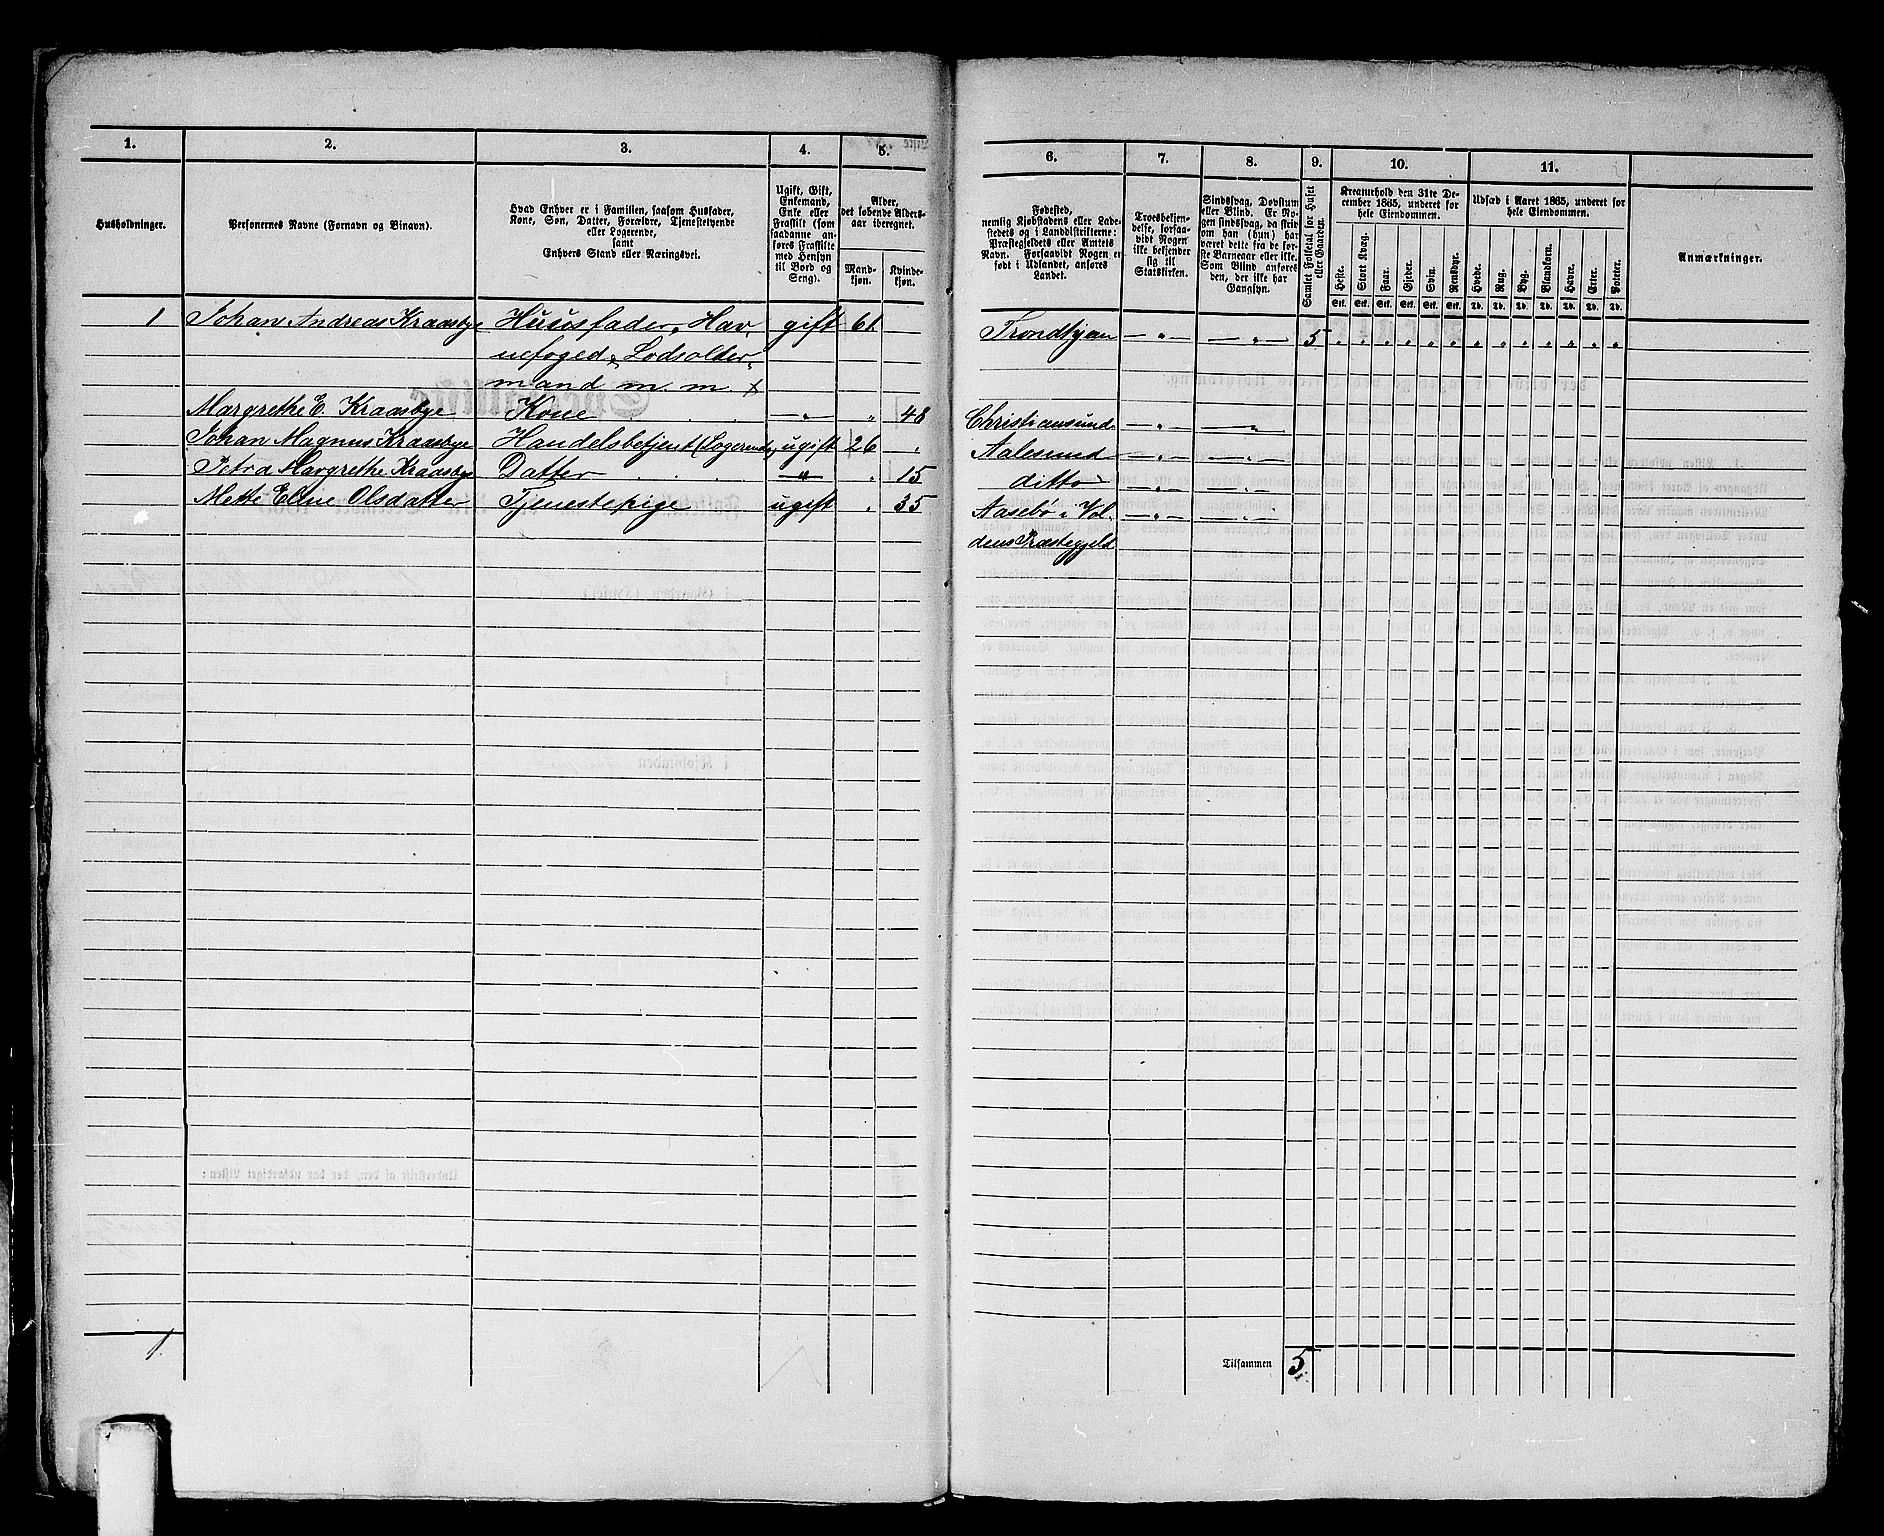 1. 2. 3. 4. 5.
Husholdninger.
Personernes Navne (Fornavn og Binavn).
Hvad Enhver er i Familien, saasom Husfader,
Kone, Søn, Datter, Forældre, Tjenestetyende
eller Logerende,
samt
Enhvers Stand eller Næringsvei.
Ugift, Gift,
Enkemand,
Enke eller
Fraskilt (som
saadanne an-
føres Fraskilte
med Hensyn
til Bord og
Seng).
Alder,
det løbende Alders-
aar iberegnet.
Mand-
kjøn.
Kvinde-
kjøn.
1 Johan Andreas Kraasbye Huusfader, Hav gift 61
nefoged, Lodsolder
mand m. m.
Margrethe E. Kraasbye Kone — " — " 48
Johan Magnus Kraasbye Handelsbetjent (Logerende) ugift 26 "
Petra Margrethe Kraasbye Datter — " — " 15
Mette Eline Olsdatter Tjenestepige ugift " 35
1
6. 7. 8. 9. 10. 11.
Fødested,
nemlig Kjøbstadens eller Lade-
stedets og i Landdistrikterne:
Præstegjeldets eller Amtets
Navn. Forsaavidt Nogen er
født i Udlandet, anføres
Landet.
Troesbekjen-
delse, forsaa-
vidt Nogen
ikke bekjender
sig til
Statskirken.
Sindssvag, Døvstum
eller Blind. Er No-
gen sindssvag, da skriv
om han (hun) har
været dette fra de for-
ste Barneaar eller ikke.
Som Blind anføres
den, der ikke har
Gangsyn.
Samlet Folketal for Huset
eller Gaarden.
Kreaturhold den 31te De-
cember 1865, underet for
hele Eiendommen.
Heste. Stort Kvæg. Faar. Gjeder. Svin. Rensdyr.
Stk. Stk. Stk. Stk. Stk. Stk.
Udsæd i Aaret 1865, underet for
hele Eiendommen.
Hvede. Rug. Byg. Blandkorn. Havre. Erter. Poteter.
Td. Td. Td. Td. Td. Td. Td.
Anmærkninger.
Trondhjem — " — — " — 5 " " " " " " " " " " " " "
Christiansund — " — — " —
Aalesund — " — — " —
ditto — " — — " —
Aasebø i Vol — " — — " —
dens Præstegjeld
Tilsammen 5